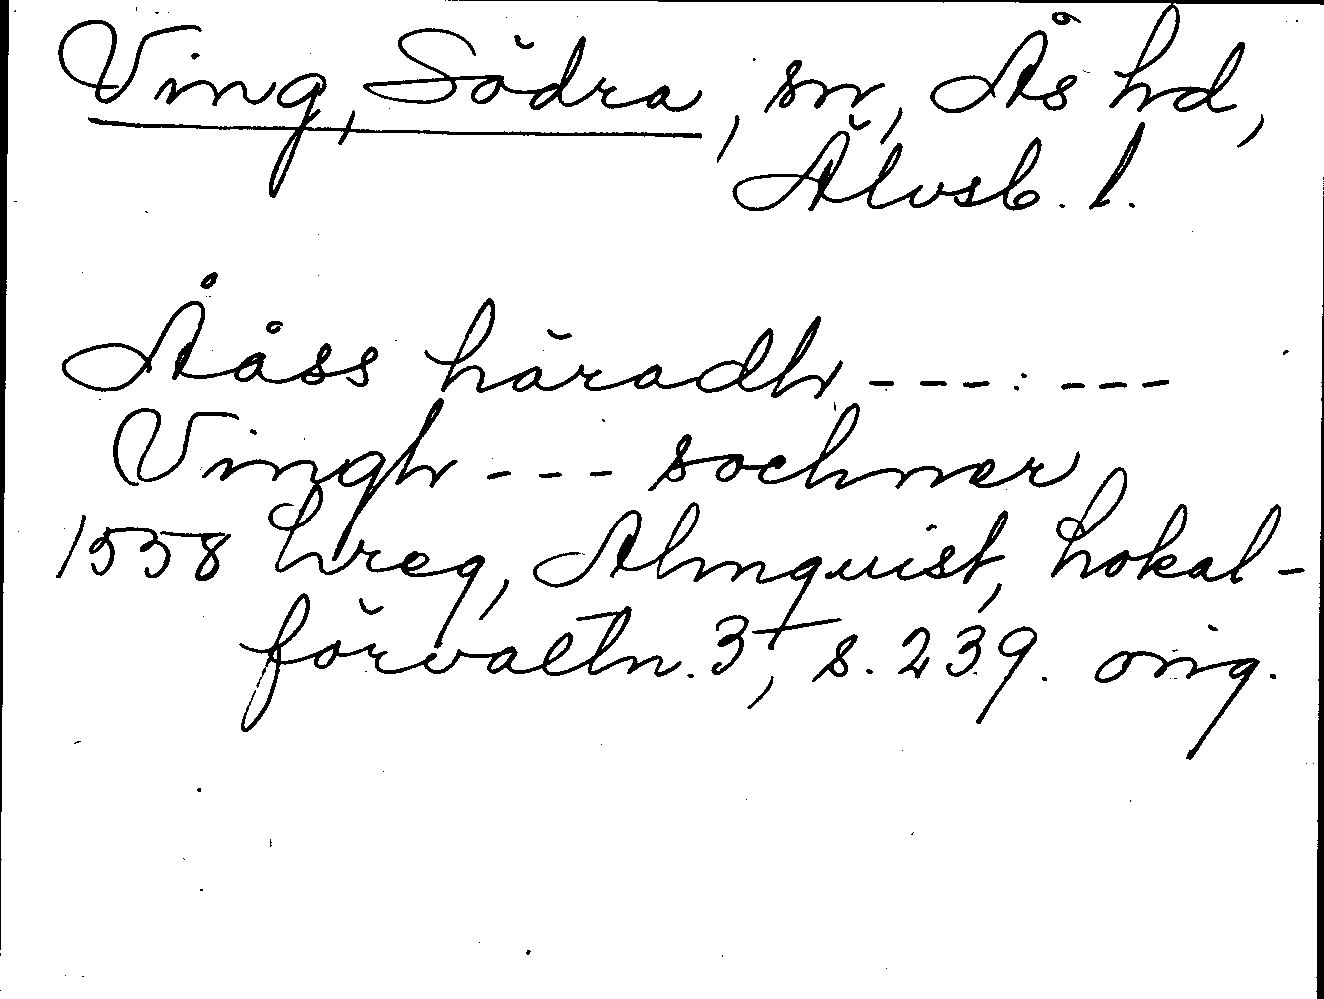 Ving, Södra, sn, Ås hd,
Älvsb. l.
Ååss häradh --- : ---
Vingh --- sochner
1558 hreg, Almquist, Lokal-
förvaltn. 3, s. 239. orig.